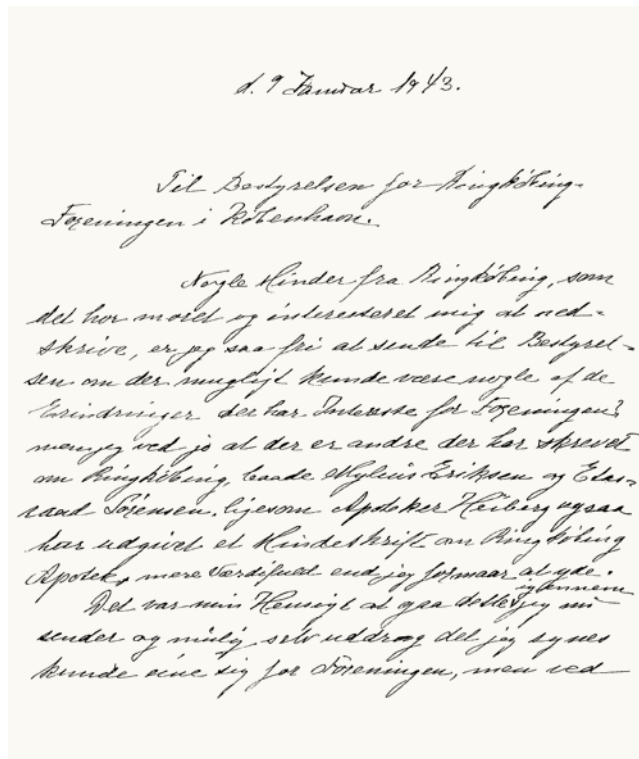 d. 9 Januar 1943.
Til Bestyrelsen for Ringkøbing-
Foreningen i København.
Nogle Minder fra Ringkøbing, som
det har moret og interesseret mig at ned-
skrive, er jeg saa fri at sende til Bestyrel-
sen om der mugligt kunde være nogle af de
Erindringer der har Interesse for Foreningen?
men jeg ved jo at der er andre der har skrevet
om Ringkøbing, baade Mylius Eriksen og Etas-
raad Sørensen, ligesom Apoteker Heiberg ogsaa
har udgivet et Mindeskrift om Ringkøbing
Apotek, mere værdifuld end jeg formaar at yde.
Det var min Hensigt at gaa dette igennem jeg nu
sender og selv uddrag det jeg synes
kunde eine sig for Foreningen, men ved